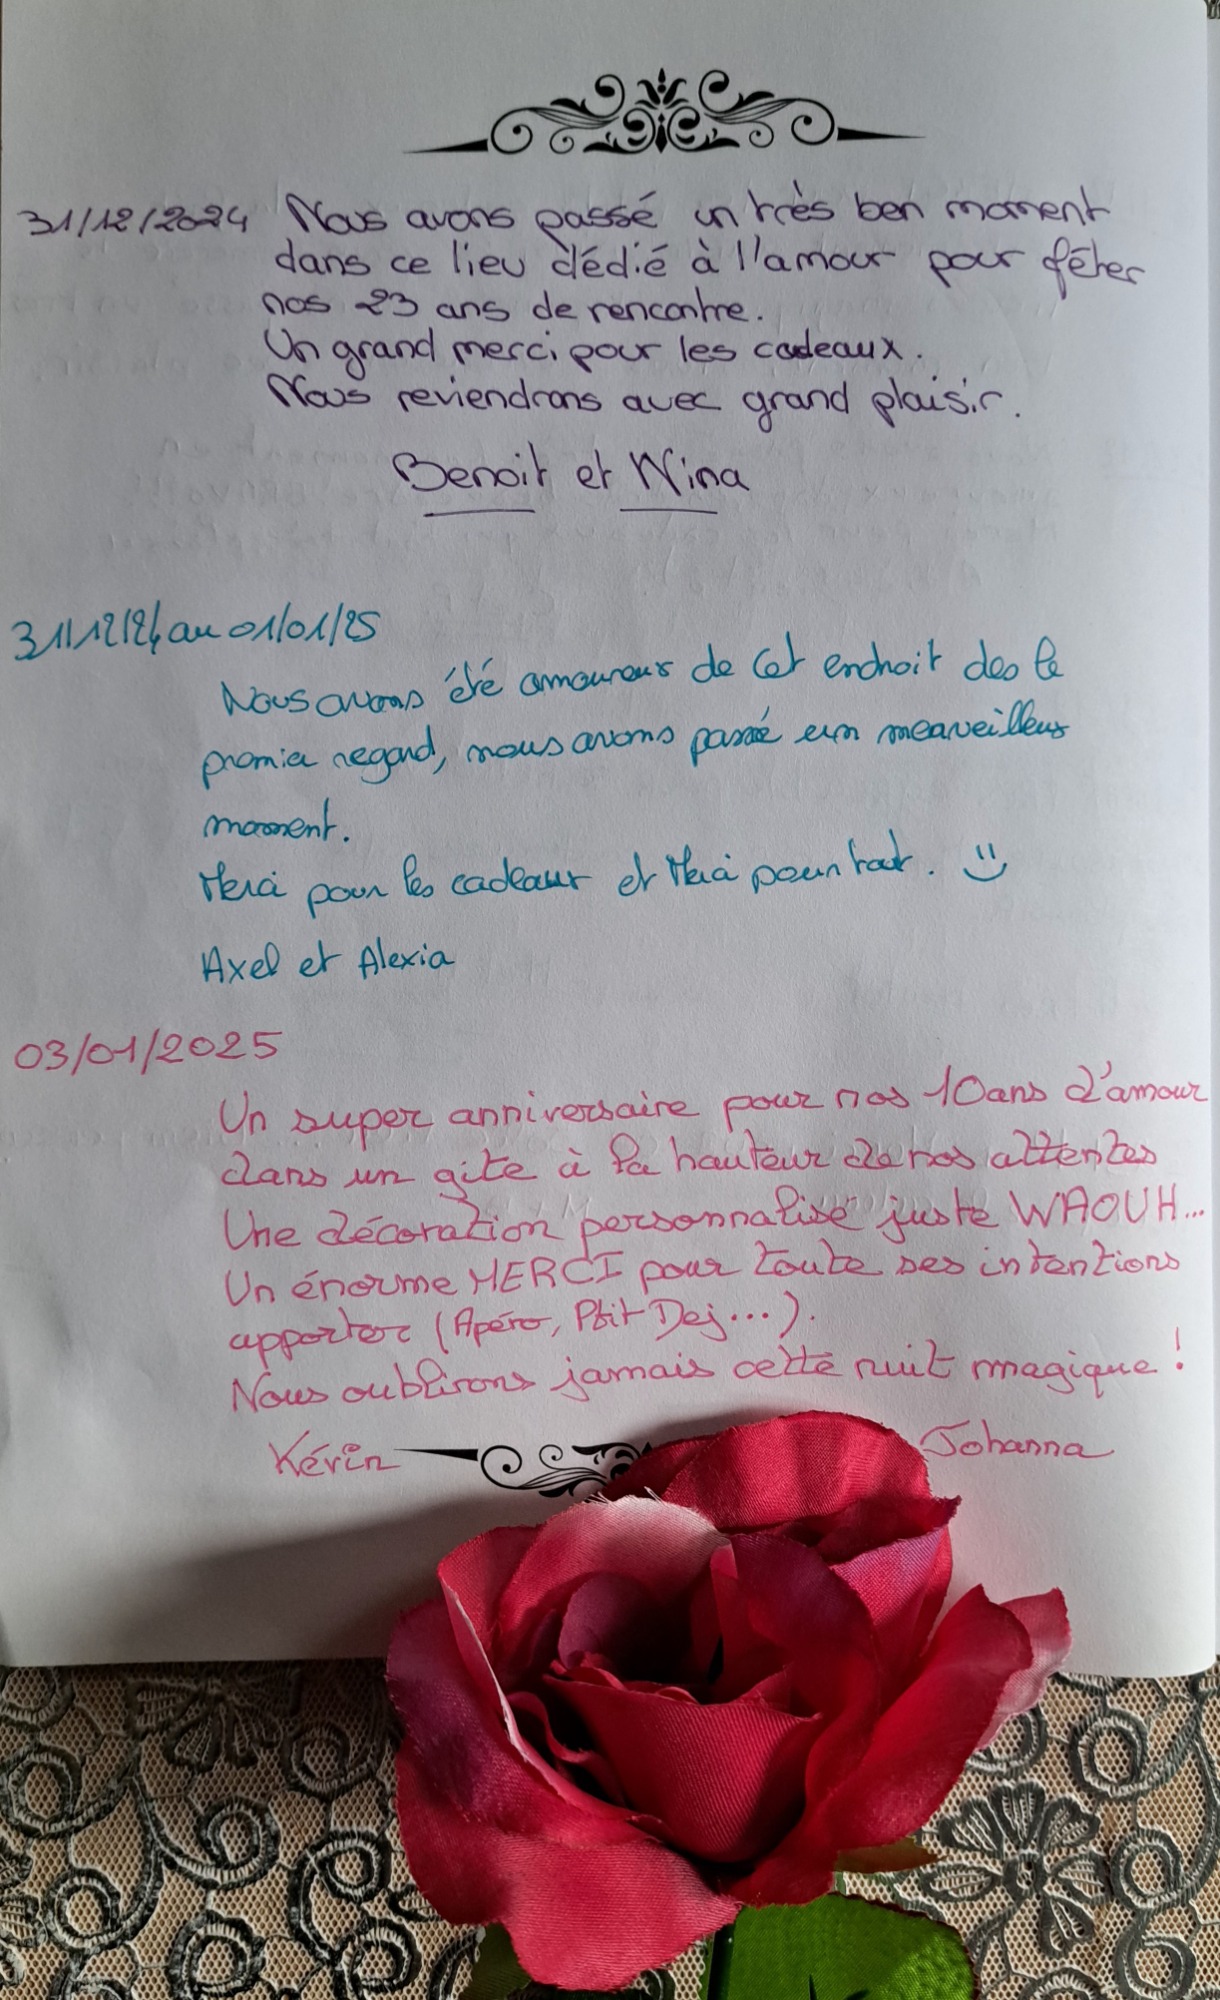 31/12/2024 Nous avons passé un très bon moment
dans ce lieu dédié à l'amour pour fêter
nos 23 ans de rencontre.
Un grand merci pour les cadeaux.
Nous reviendrons avec grand plaisir.
Benoit et Nina
31/12/24 au 01/01/25
Nous avons été amoureux de cet endroit des le
premier regard, nous avons passé un merveilleux
moment.
Merci pour les cadeaux et Merci pour tout. :)
Axel et Alexia
03/01/2025
Un super anniversaire pour nos 10 ans d'amour
dans un gite à la hauteur de nos attentes
Une décoration personnalisé juste WAOUH...
Un énorme MERCI pour toute ses intentions
apporter (Apéro, Ptit Dej...).
Nous oublirons jamais cette nuit magique !
Kévin Johanna